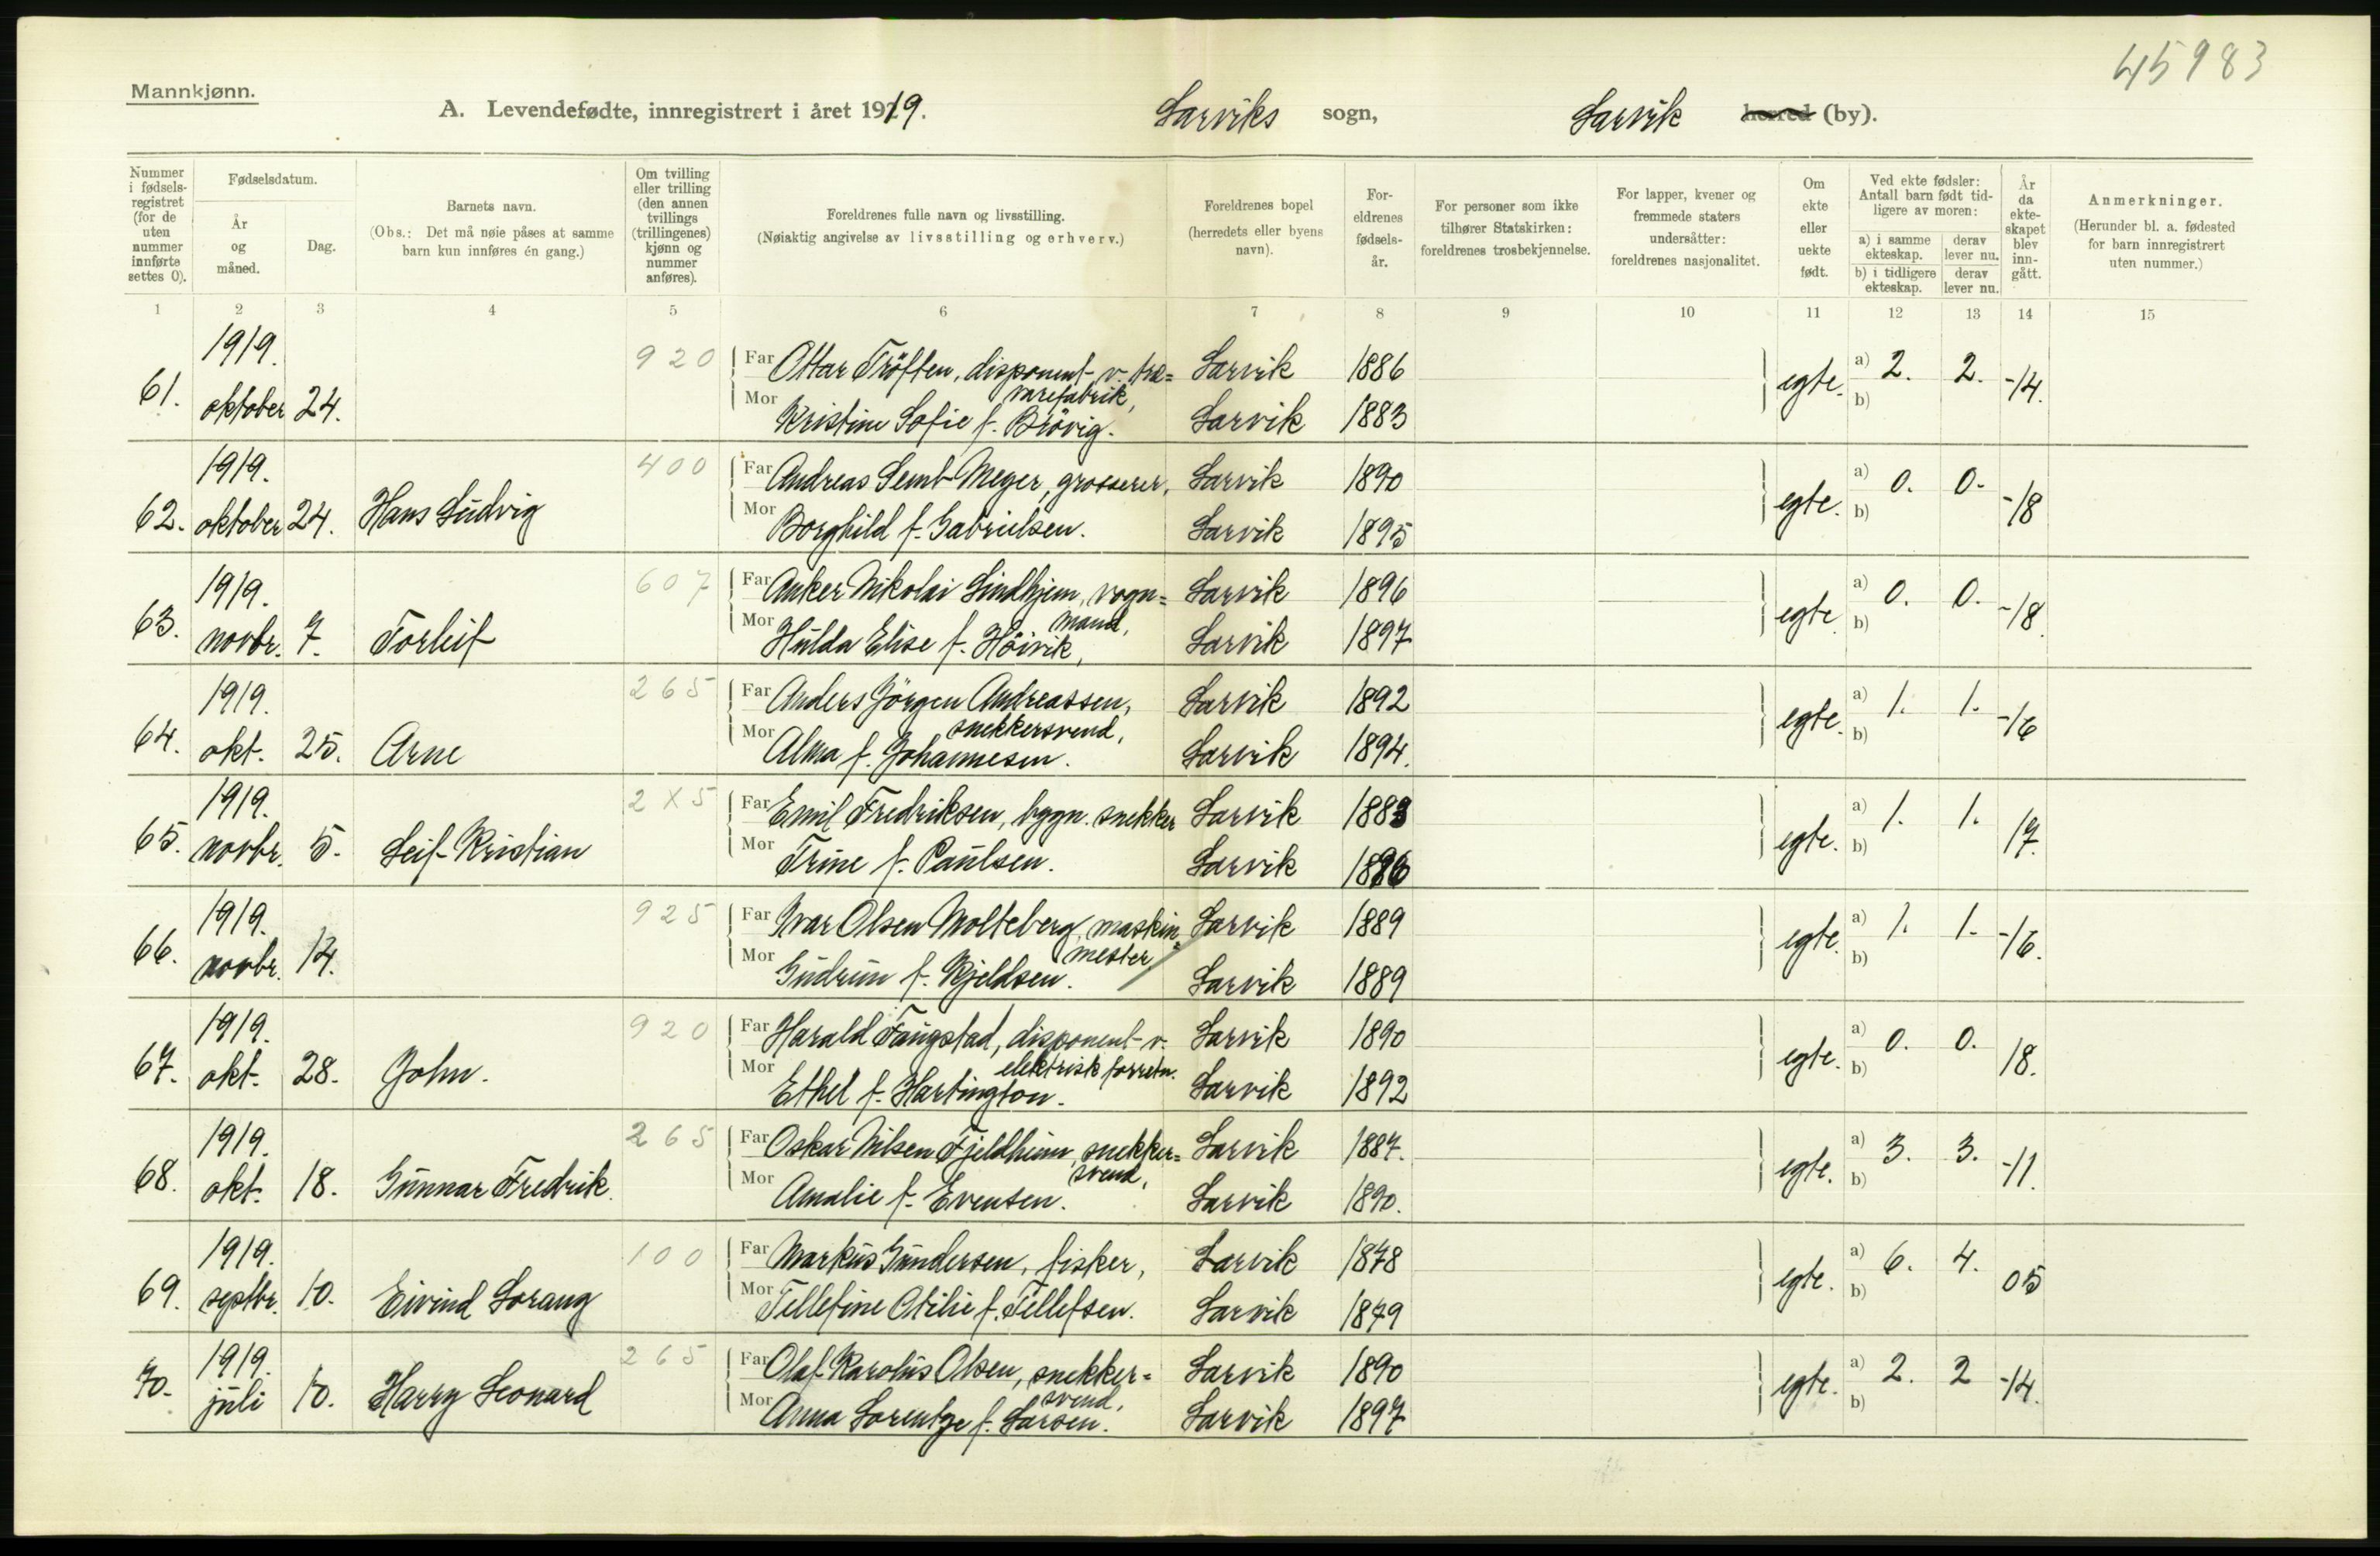 45983
Mannkjønn.
A. Levendefødte, innregistrert i året 1919. Larviks sogn, Larvik herred (by).
Nummer i fødsels-registret (for de uten nummer innførte settes 0).
Fødselsdatum.
År og måned.
Dag.
Barnets navn.
(Obs.: Det må nøie påses at samme barn kun innføres én gang.)
Om tvilling eller trilling (den annen tvillings (trillingenes) kjønn og nummer anføres).
Foreldrenes fulle navn og livsstilling.
(Nøiaktig angivelse av livsstilling og erhverv.)
Foreldrenes bopel (herredets eller byens navn).
For-eldrenes fødsels-år.
For personer som ikke tilhører Statskirken: foreldrenes trosbekjennelse.
For lapper, kvener og fremmede staters undersåtter: foreldrenes nasjonalitet.
Om ekte eller uekte født.
Ved ekte fødsler: Antall barn født tid-ligere av moren:
a) i samme ekteskap. derav lever nu.
b) i tidligere ekteskap. derav lever nu.
År da ekte-skapet blev inn-gått.
Anmerkninger.
(Herunder bl. a. fødested for barn innregistrert uten nummer.)
1 2 3 4 5 6 7 8 9 10 11 12 13 14 15
1919. 920 Far Ottar Tröften, disponent v. træ= Larvik 1886 a) 2. 2.
61. oktober 24. Mor varefabrik, egte. b) -14.
Kristine Sofie f. Brövig. Larvik 1883
1919. 400 Far Andreas Semb Meyer, grosserer, Larvik 1890 a) 0. 0.
62. oktober 24. Hans Ludvig Mor Borghild f. Gabrielsen. Larvik 1895 egte. b) -18
1919. 607 Far Anker Nikolai Lindhjem, vogn= Larvik 1896 a) 0. 0.
63. novbr. 7. Torleif Mor mand, egte b) -18.
Hulda Elise f. Höivik, Larvik 1897
1919. 265 Far Anders Jörgen Andreassen, Larvik 1892 a) 1. 1.
64. okt. 25. Arne Mor snekkersvend, egte. b) -16
Alma f. Johannesen. Larvik 1894.
1919. 2X5 Far Emil Fredriksen, bygn. snekker Larvik 1883 a) 1. 1.
65. novbr. 5. Leif Kristian Mor Trine f. Paulsen. Larvik egte. b) 17.
1919. 925 Far Ivar Olsen Molteberg, maskin= Larvik 1889 a) 1. 1.
66. novbr. 14. Mor mester egte. b) -16.
Gudrun f. Kjeldsen. Larvik 1889
1919. 920 Far Harald Faugstad, disponent v. Larvik 1890 a) 0. 0.
67. okt. 28. John. Mor elektrisk forretn. egte. b) 18.
Ethel f. Hartington. Larvik 1892
1919. 265 Far Oskar Nilsen Fjeldheim, snekker= Larvik 1887. a) 3. 3.
68. okt. 18. Gunnar Fredrik. Mor svend, egte. b) -11.
Amalie f. Evensen. Larvik 1890.
1919. 100 Far Markus Gundersen, fisker, Larvik 1878 a) 6. 4.
69. septbr. 10. Eivind Lorang Mor Tellefine Otilie f. Tellefsen. Larvik 1879 egte. b) 05
1919. 265 Far Olaf Karolus Olsen, snekker= Larvik 1890 a) 2. 2
70. juli 10. Harry Leonard Mor svend, egte. b) -14.
Anna Lorentze f. Larsen. Larvik 1897